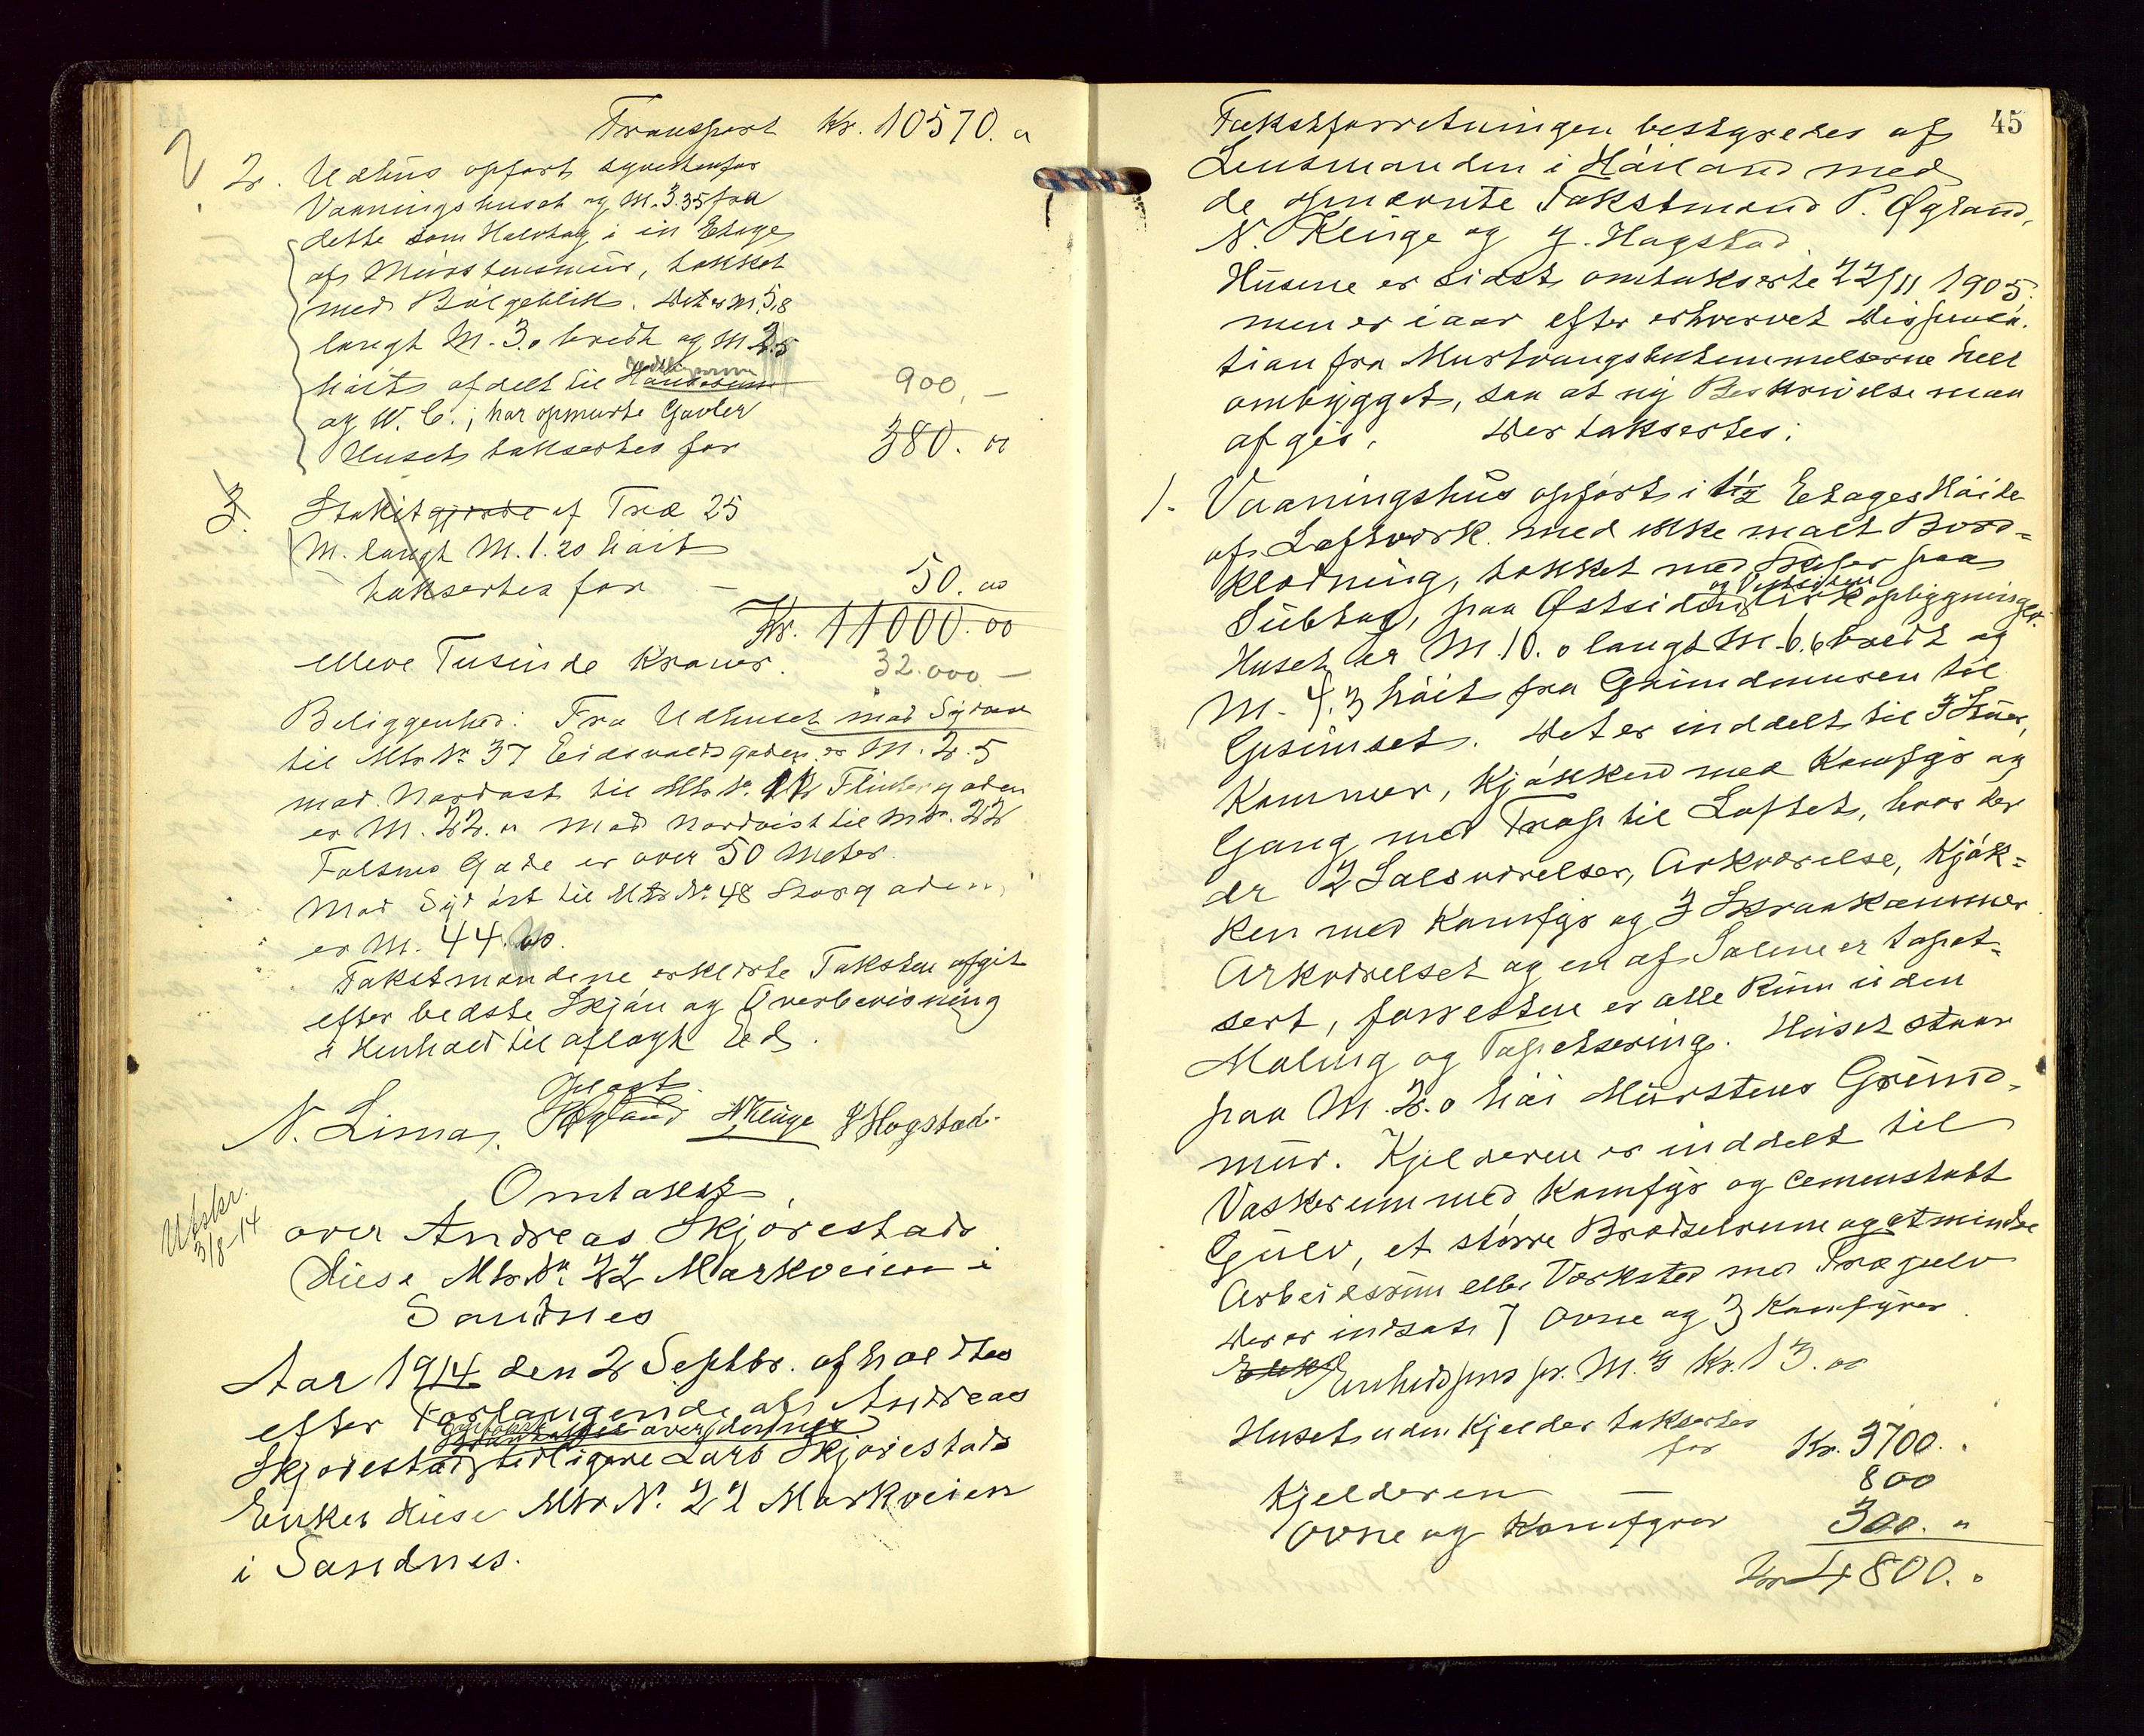 Transport Kr. 10570. "
2. Udhus opført søvestenfor
Vaaningshuset og M. 3.35 fra
dette som Halvtag i en Etage
af Murstensmur, tækket
med Bølgeblik. Det er M. 5.8
langt M. 3.0 bredt og M 2.5
høit, afdelt til
og W. C.; har opmurte Gavler
Huset taksertes for
900, —
380. 00
3. Stakitgjærde af Træ 25
M. langt M. 1.20 høit
taksertes for — 50. 00
Kr. 11000. 00
elleve Tusinde Kroner. 32.000 —
Beliggenhed: Fra Udhuset mod Syd
til Mtr Nr 37 Eidsvoldsgaden er M. 2.5
mod Nordost til Mtr Nr. Flintergaden
er M. 22. " Mod Nordvest til Mtr. 22
Gade er over 50 Meter.
Mod Sydøst til Mtr Nr. 48 Storgaden,
er M. 44.
Takstmændene erklærte Taksten afgit
efter bedste Skjøn og Overbevisning
i Henhold til aflagt Ed.
N. Lima, P Øgland N Kluge G Hogstad.
Utskr.
3/8-14
Omtakst
over Andreas Skjørestads
Huse Mtr. Nr. 22 Markveien i
Sandnes
Aar 1914 den 2 Septbr. afholdtes
efter Forlangende af Andreas
Omtakst over dennes
Skjørestads tidligere Lars Skjørestads
Enkes Huse Mtr N. 22 Markveien
i Sandnes.
45
Takstforretningen bestyredes af
Lensmanden i Høiland med
de opnævnte Takstmænd P. Øgland,
N. Kluge og G. Hogstad.
Husene er sidst omtakserte 22/11 1905.
men er iaar efter erhvervet Dispensa-
tion fra Murtvangsbestemmelserne helt
ombygget, saa at ny Beskrivelse maa
afgis. Der taksertes:
1. Vaaningshus opført i 1½ Etages Høide
af Laftverk med ikke malt Bord-
klædning, tækket med Skifer paa
Subtag, paa Østsiden og Vestsiden Arkopbygninger.
Huset er M. 10.0 langt M. 6.6 bredt og
M. 4.3 høit fra Grundmuren til
Gesimset. Det er inddelt til 3 Stuer,
Kammer, Kjøkken med Komfyr og
Gang med Trap til Loftet, hvor der
er 2 Salsværelser, Arkværelse, Kjøk-
ken med Komfyr og 3 Skraakammer
Arkværelset og en af Salene er tapet-
sert, forresten er alle Rum uden
Maling og Tapetsering. Huset staar
paa M. 2.0 høi Murstens Grund-
mur. Kjelderen er inddelt til
Vaskerum med Komfyr og Cementstøbt
Gulv, et større Brødselrum og et mindre
Arbeidsrum eller Værksted med Trægulv
Der er indsat 7 Ovne og 3 Komfyrer.
Enhedspris pr. M.3 Kr. 13. 00
Huset uden Kjelder taksertes
for Kr. 3700. "
Kjelderen — 800
Ovne og Komfyrer 300. "
Kr 4800. "